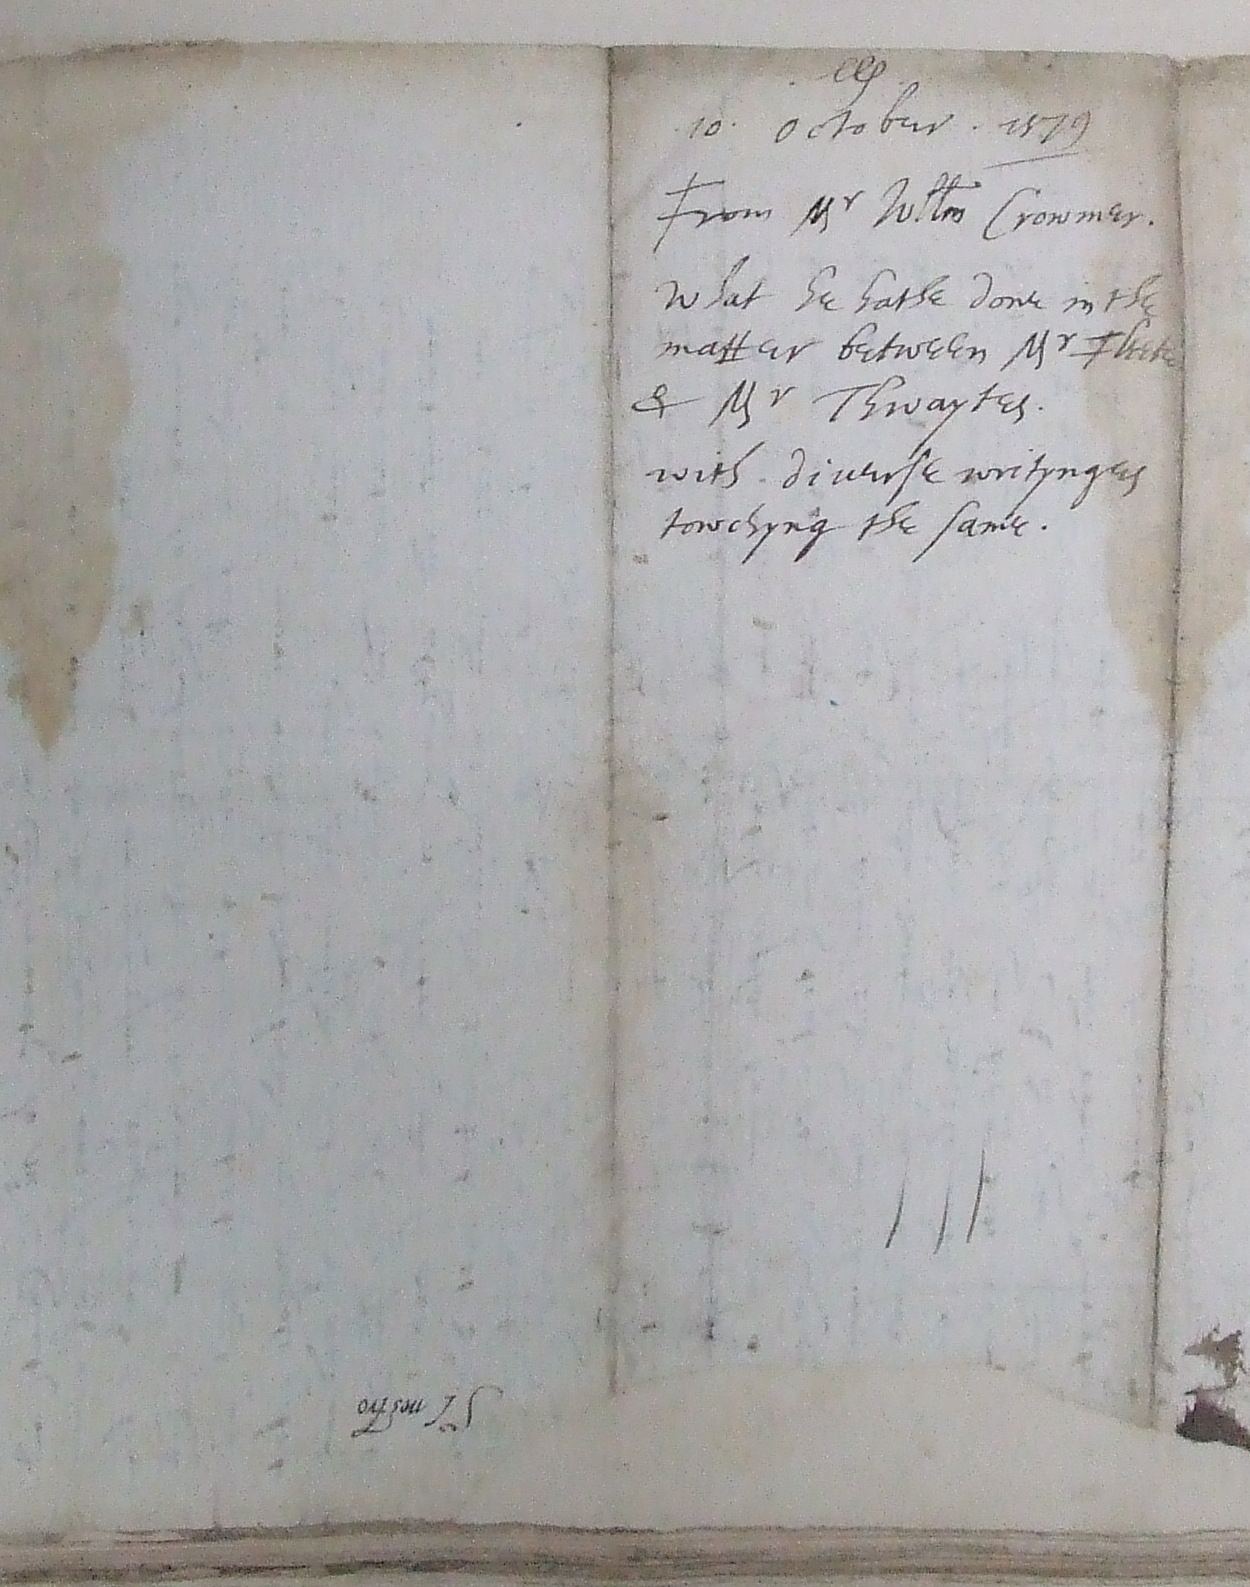 10. October. 1579
From Mr Willm Crowmer.
What he hathe done in the
matter between Mr Fleete
& Mr Thwaytes.
with diuerse writynges
towchyng the same.